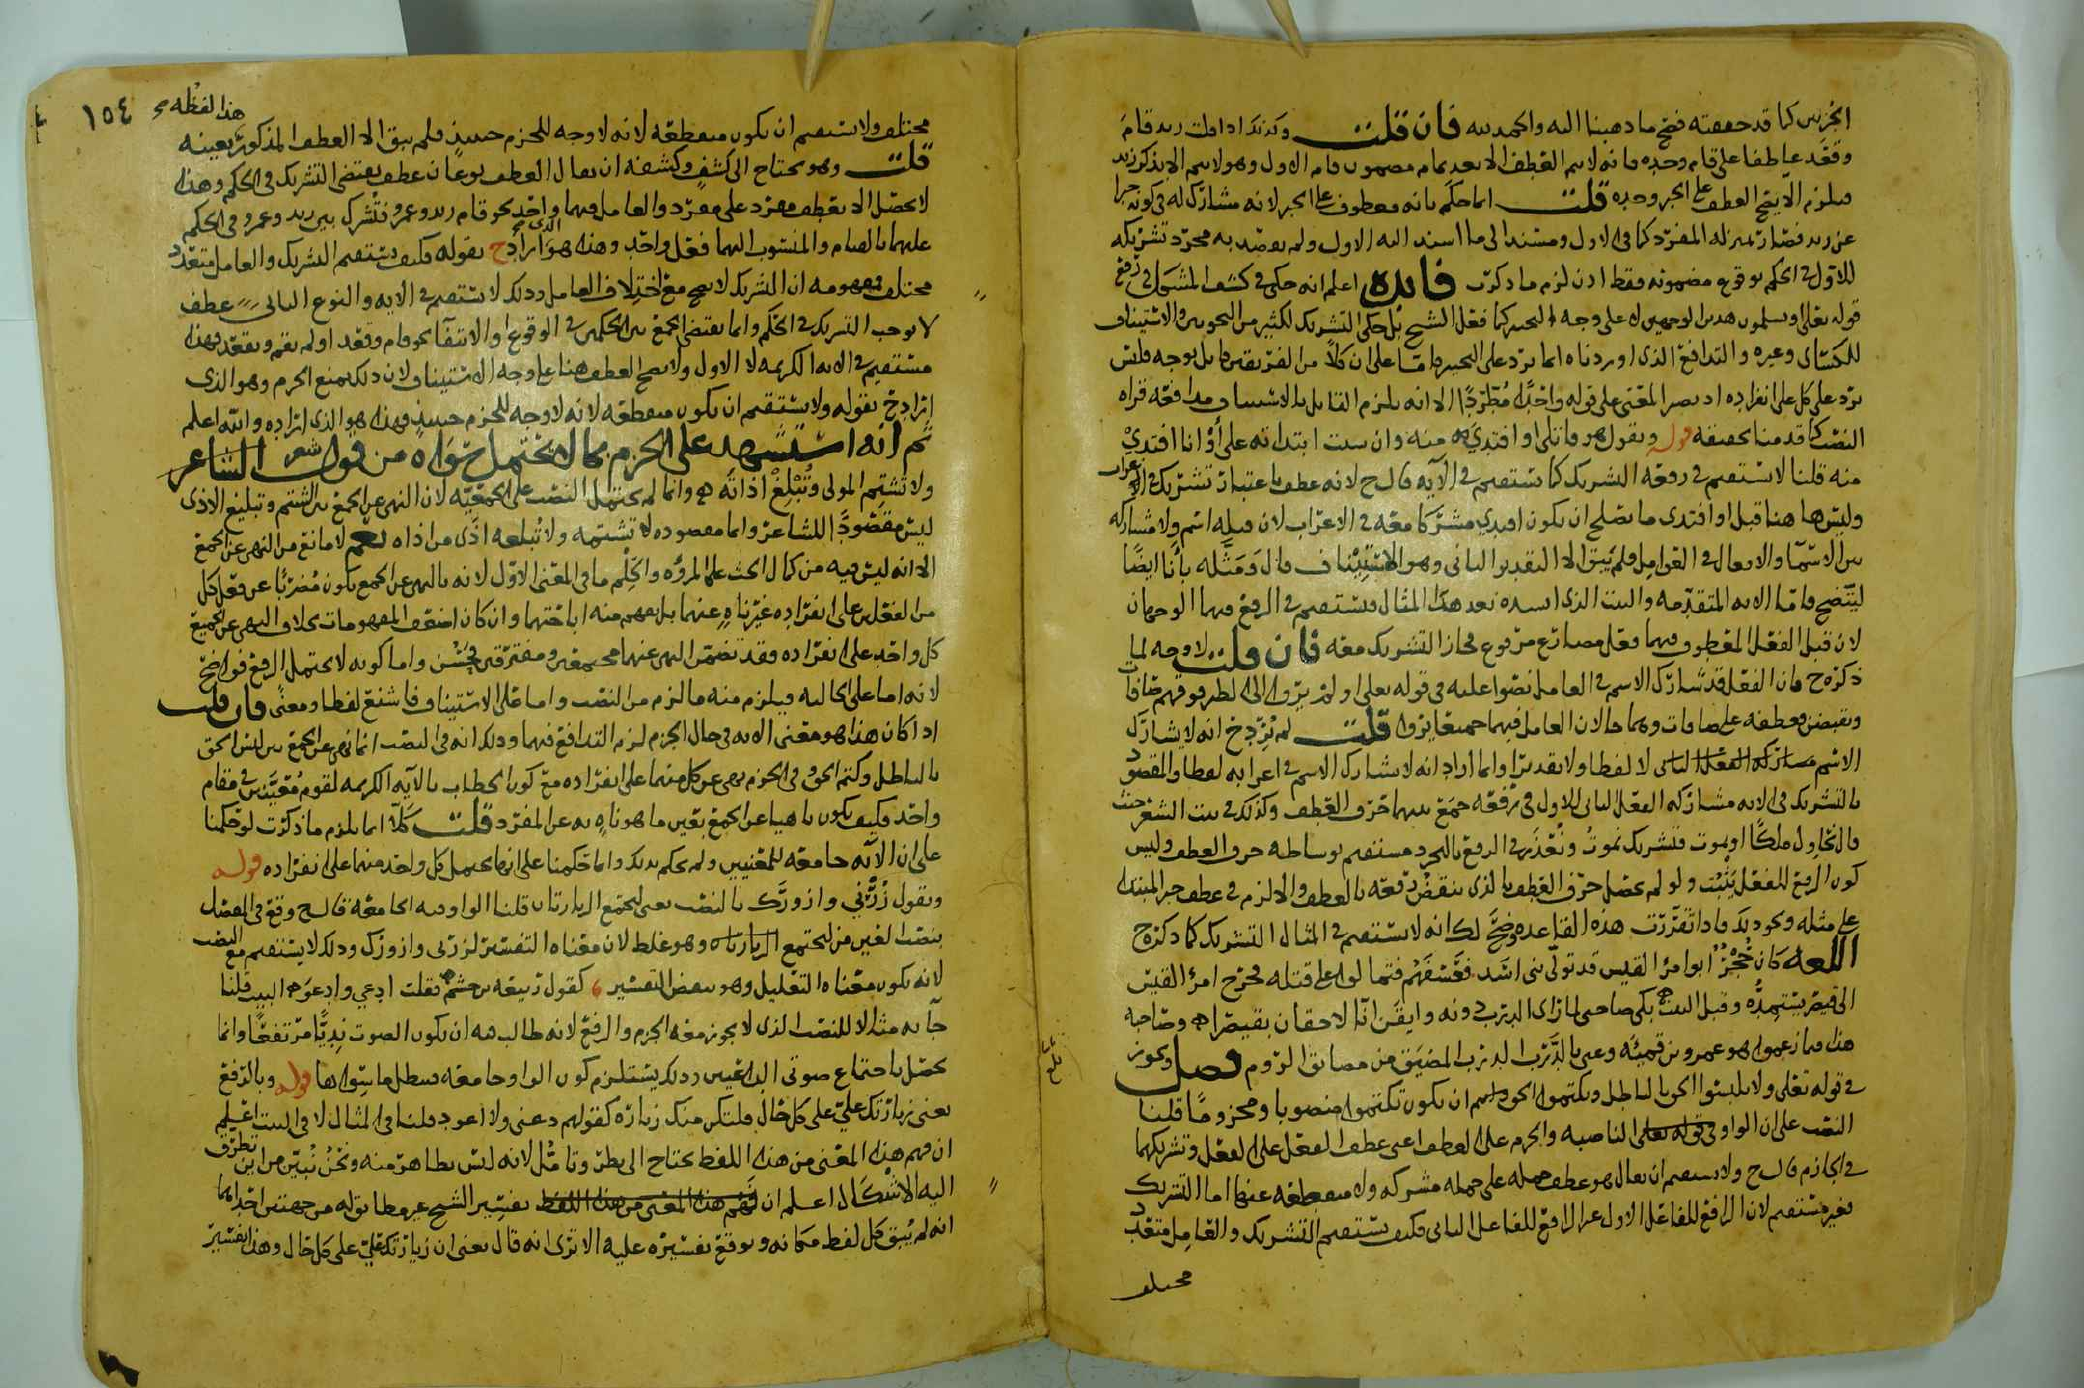 الجزءين كما قد حققته فصح ما ذهبنا اليه والحمد لله فان قلت وكذلك اذا قلت زيد قام
وقعد عاطفا على قام وحده فانه لا يتم العطف الا بعد تمام مضمون قام الاول وهو لا يتم الا بذكر زيد
فيلزم الا يصح العطف على الخبر وحده قلت انما حكم بانه معطوف على الخبر لانه مشارك له في كونه خبرا
عن زيد فصار بمنزلة المفرد كما في الاول ومسندا الى ما اسند اليه الاول ولم يقصد به مجرد تشريكه
للاول في الحكم بوقوع مضمونه فقط اذن لزم ما ذكرت فايدة اعلم انه حكى في كشف المشكل في رفع
قوله تعالى او يسلمون هذين الوجهين لا على وجه التخيير كما فعل الشيخ بل حكى التشريك لكثير من النحويين والاستيناف
للكسائي وغيره والتدافع الذي اوردناه انما يرد على التخيير فاما على ان كلا من الفريقين قايل بوجه فليس
يرد على كل على انفراده اذ يصير المعنى على قوله واحدا مطردا الا انه يلزم القايل بالاستيناف مدافعة قراة
النصب كما قدمنا تحقيقه قوله ويقول هو قاتلي او افتدي منه وان شيت ابتداته على او انا افتدي
منه قلنا لا يستقيم في رفعه التشريك كما يستقيم في الآيه قال ح لانه عطف باعتبار تشريك في الاعراب
وليس هاهنا قبل او افتدي ما يصلح ان يكون افتدي مشركا معه في الاعراب لان قبله اسم ولا مشاركه
بين الاسما والافعال في العوامل فلم يبق الا التقدير الثاني وهو الاستيناف قال ومثله بأنا ايضا
ليتضح فاما الايه المتقدمه والبيت الذي انشده بعد هذا المثال فيستقيم في الرفع فيهما الوجهان
لان قبل الفعل المعطوف فيهما فعل مضارع مرفوع فجاز التشريك معه فان قلت لا وجه لما
ذكره ح فان الفعل قد شارك الاسم في العامل نصوا عليه في قوله تعالى اولم يروا الى الطير فوقهم صافات
ويقبضن فعطفه على صافات وهما حالان العامل فيهما جميعا يروا قلت لم يرد ح انه لا يشارك
الاسم لا لفظا ولا تقديرا وانما اراد انه لا يشارك الاسم في اعرابه لفظا والمقصود
بالتشريك في الايه مشاركة الفعل الثاني للاول في رفعه جمع بينهما حرف العطف وكذلك في بيت الشعر حيث
قال نحاول ملكا او نموت فتشريك نموت ونعذر في الرفع بالتجرد مستقيم بوساطة حرف العطف وليس
كون الرفع للفعل يثبت ولو لم يحصل حرف العطف بالذي ينقض رفعه بالعطف والا لزم في عطف خبر المبتدا
على مثله ونحو ذلك فاذا تقررت هذه القاعده وضح لك انه لا يستقيم في المثال التشريك كما ذكره ح
اللغه كان حجر ابو امرئ القيس قد تولى بني اسد فعسفهم فتمالوا على قتله فخرج امرؤ القيس
الى قيصر يستمده وقبل البيت بكى صاحبي لما راى الدرب دونه وايقن انا لاحقان بقيصرا وصاحبه
هذا فيما زعموا هو عمرو بن قميئه وعنى بالدرب الدرب المضيق من مضايق الروم فصل ويجوز
في قوله تعالى ولا تلبسوا الحق بالباطل وتكتموا الحق ان يكون تكتموا منصوبا ومجزوما قلنا
النصب على ان الواو الناصبه والجزم على العطف اعني عطف الفعل على الفعل وتشريكهما
في الجازم قال ح ولا يستقيم ان يقال هو عطف جمله على جمله مشركه ولا منقطعه عنها اما التشريك
فغير مستقيم لان الرافع للفاعل الاول غير الرافع للفاعل الثاني فكيف يستقيم التشريك والعامل متعدد
مختلف
هذا لفظه
١٥٤
مختلف ولا يستقيم ان يكون منقطعه لانه لا وجه للجزم حينيذ فلم يبق الا العطف المذكور بعينه
قلت وهو يحتاج الى كشف وكشفه ان يقال العطف نوعان عطف يقتضي التشريك في الحكم وهذا
لا يحصل الا بعطف مفرد على مفرد والعامل فيهما واحد نحو قام زيد وعمرو فتشرك بين زيد وعمرو في الحكم
عليهما بالقيام والمنسوب اليهما فعل واحد وهذا هو الذي اراد ح بقوله فكيف يستقيم التشريك والعامل متعدد
مختلف فمفهومه ان التشريك لا يصح مع اختلاف العامل وذلك لا يستقيم في الايه والنوع الثاني عطف
لا يوجب التشريك في الحكم وانما يقتضي الجمع بين الحكمين في الوقوع او الانتفا نحو قام وقعد او لم يقم ويقعد فهذا
مستقيم في الايه الكريمه لا الاول ولا يصح العطف هنا على وجه الاستيناف لان ذلك يمنع الجزم وهو الذي
اراد ح بقوله ولا يستقيم ان يكون منقطعه لانه لا وجه للجزم حينيذ فهذا هو الذي اراده والله اعلم
ثم انه استشهد على الجزم بما لا يحتمل سواه من قول الشاعر شعر
ولا تشتم المولى وتبلغ اذاته وانما لم يحتمل النصب على الجمعيه لان النهي عن الجمع بين الشتم وتبليغ الاذى
ليس مقصودا للشاعر وانما مقصوده لا تشتمه ولا تبلغه اذى من اذاه نعم لا مانع من النهي عن الجمع
الا انه ليس فيه من كمال الحث على المروه والحلم ما في المعنى الاول لانه بالنهي عن الجمع يكون مضربا عن فعل كل
من الفعلين على انفراده غير ناه عنهما بل يفهم منه اباحتهما وان كان اضعف المفهومات بخلاف النهي عن الجميع
كل واحد على انفراده فقد تضمن النهي عنهما مجتمعين ومفترقين فحسن واما كونه لا يحتمل الرفع فواضح
لانه اما على الحاليه فيلزم منه ما لزم من النصب واما على الاستيناف فاشنع لفظا ومعنى فان قلت
اذا كان هذا هو معنى الايه في حال الجزم لزم التدافع فيها وذلك انه في النصب انما نهى عن الجمع بين لبس الحق
بالباطل وكتم الحق وفي الجزم نهى عن كل منهما على انفراده مع كون الخطاب بالآيه الكريمه لقوم معينين في مقام
واحد فكيف يكون ناهيا عن الجمع بعين ما هو ناه به عن المفرد قلت كلا انما يلزم ما ذكرت لو حكمنا
على ان الآيه جامعه للمعنيين ولم نحكم بذلك وانما حكمنا على انها تحتمل كل واحد منهما على انفراده قوله
ويقول زرني وازورك بالنصب يعني لتجتمع الزيارتان قلنا الواو فيه الجامعه قال ح وقع في المفصل
بنصب الغين من لتجتمع الزيارتان وهو غلط لان معناه التفسير لزرني وازورك وذلك لا يستقيم مع النصب
لانه يكون معناه التعليل وهو ينقض التفسير كقول ربيعه بن جشم فقلت ادعي وادعو البيت قلنا
جا به مثالا للنصب الذي لا يجوز معه الجزم والرفع لانه طالب فيه ان يكون الصوت نديا مرتفعا وانما
يحصل باجتماع صوتي الداعيين وذلك يستلزم كون الواو جامعه فبطل ما سواها قوله وبالرفع
يعني زيارتك علي على كل حال فلتكن منك زياره كقولهم دعني ولا اعود قلنا في المثال لا في البيت اعلم
ان فهم هذا المعنى من هذا اللفظ يحتاج الى نظر وتامل لانه ليس بظاهر منه ونحن نبين من اين تطرق
اليه الاشكال اعلم ان تفسير الشيخ غير مطابق له من جهتين احداهما
انه لم يبق كل لفظ مكانه ويوقع تفسيره عليه الا ترى انه قال يعني ان زيارتك علي على كل حال وهذا تفسير